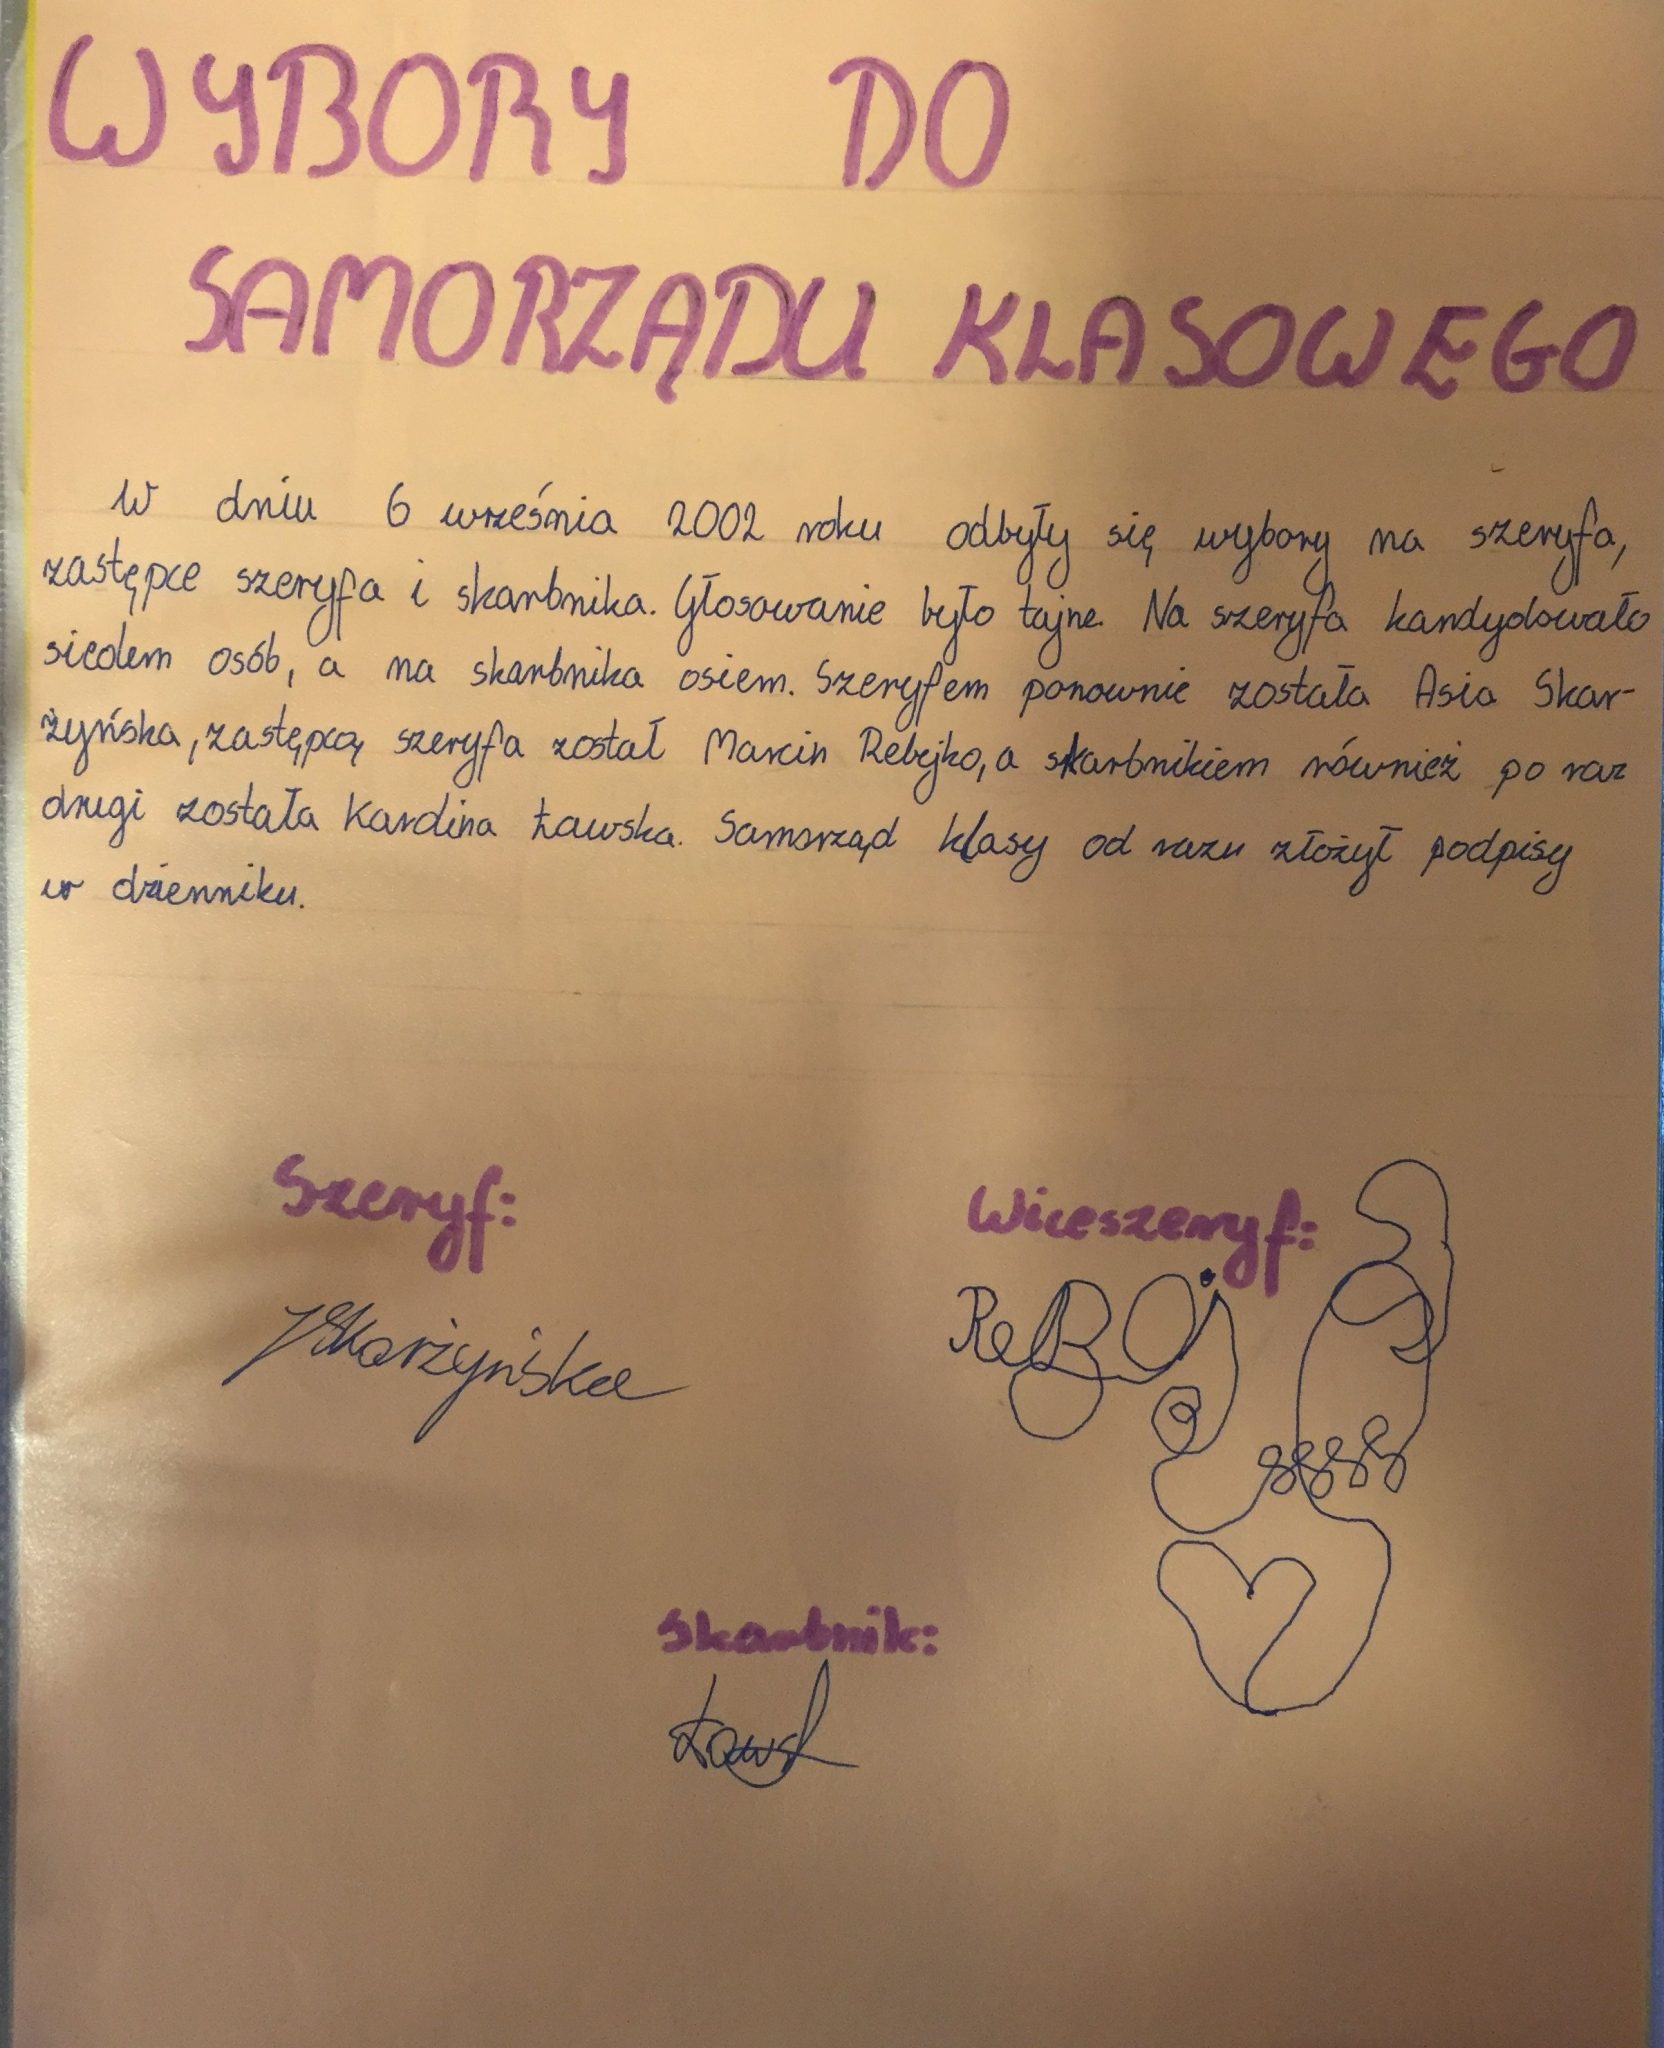 WYBORY DO
SAMORZĄDU KLASOWEGO
W dniu 6 września 2002 roku odbyły się wybory na szeryfa,
zastępce szeryfa i skarbnika. Głosowanie było tajne. Na szeryfa kandydowało
siedem osób, a na skarbnika osiem. Szeryfem ponownie została Asia Skar-
żyńska, zastępcą szeryfa został Marcin Rebejko, a skarbnikiem również po raz
drugi została Karolina Ławska. Samorząd klasy od razu złożył podpisy
w dzienniku.
Szeryf:
Wiceszeryf:
JSkarżyńska
Skarbnik:
Ławsk